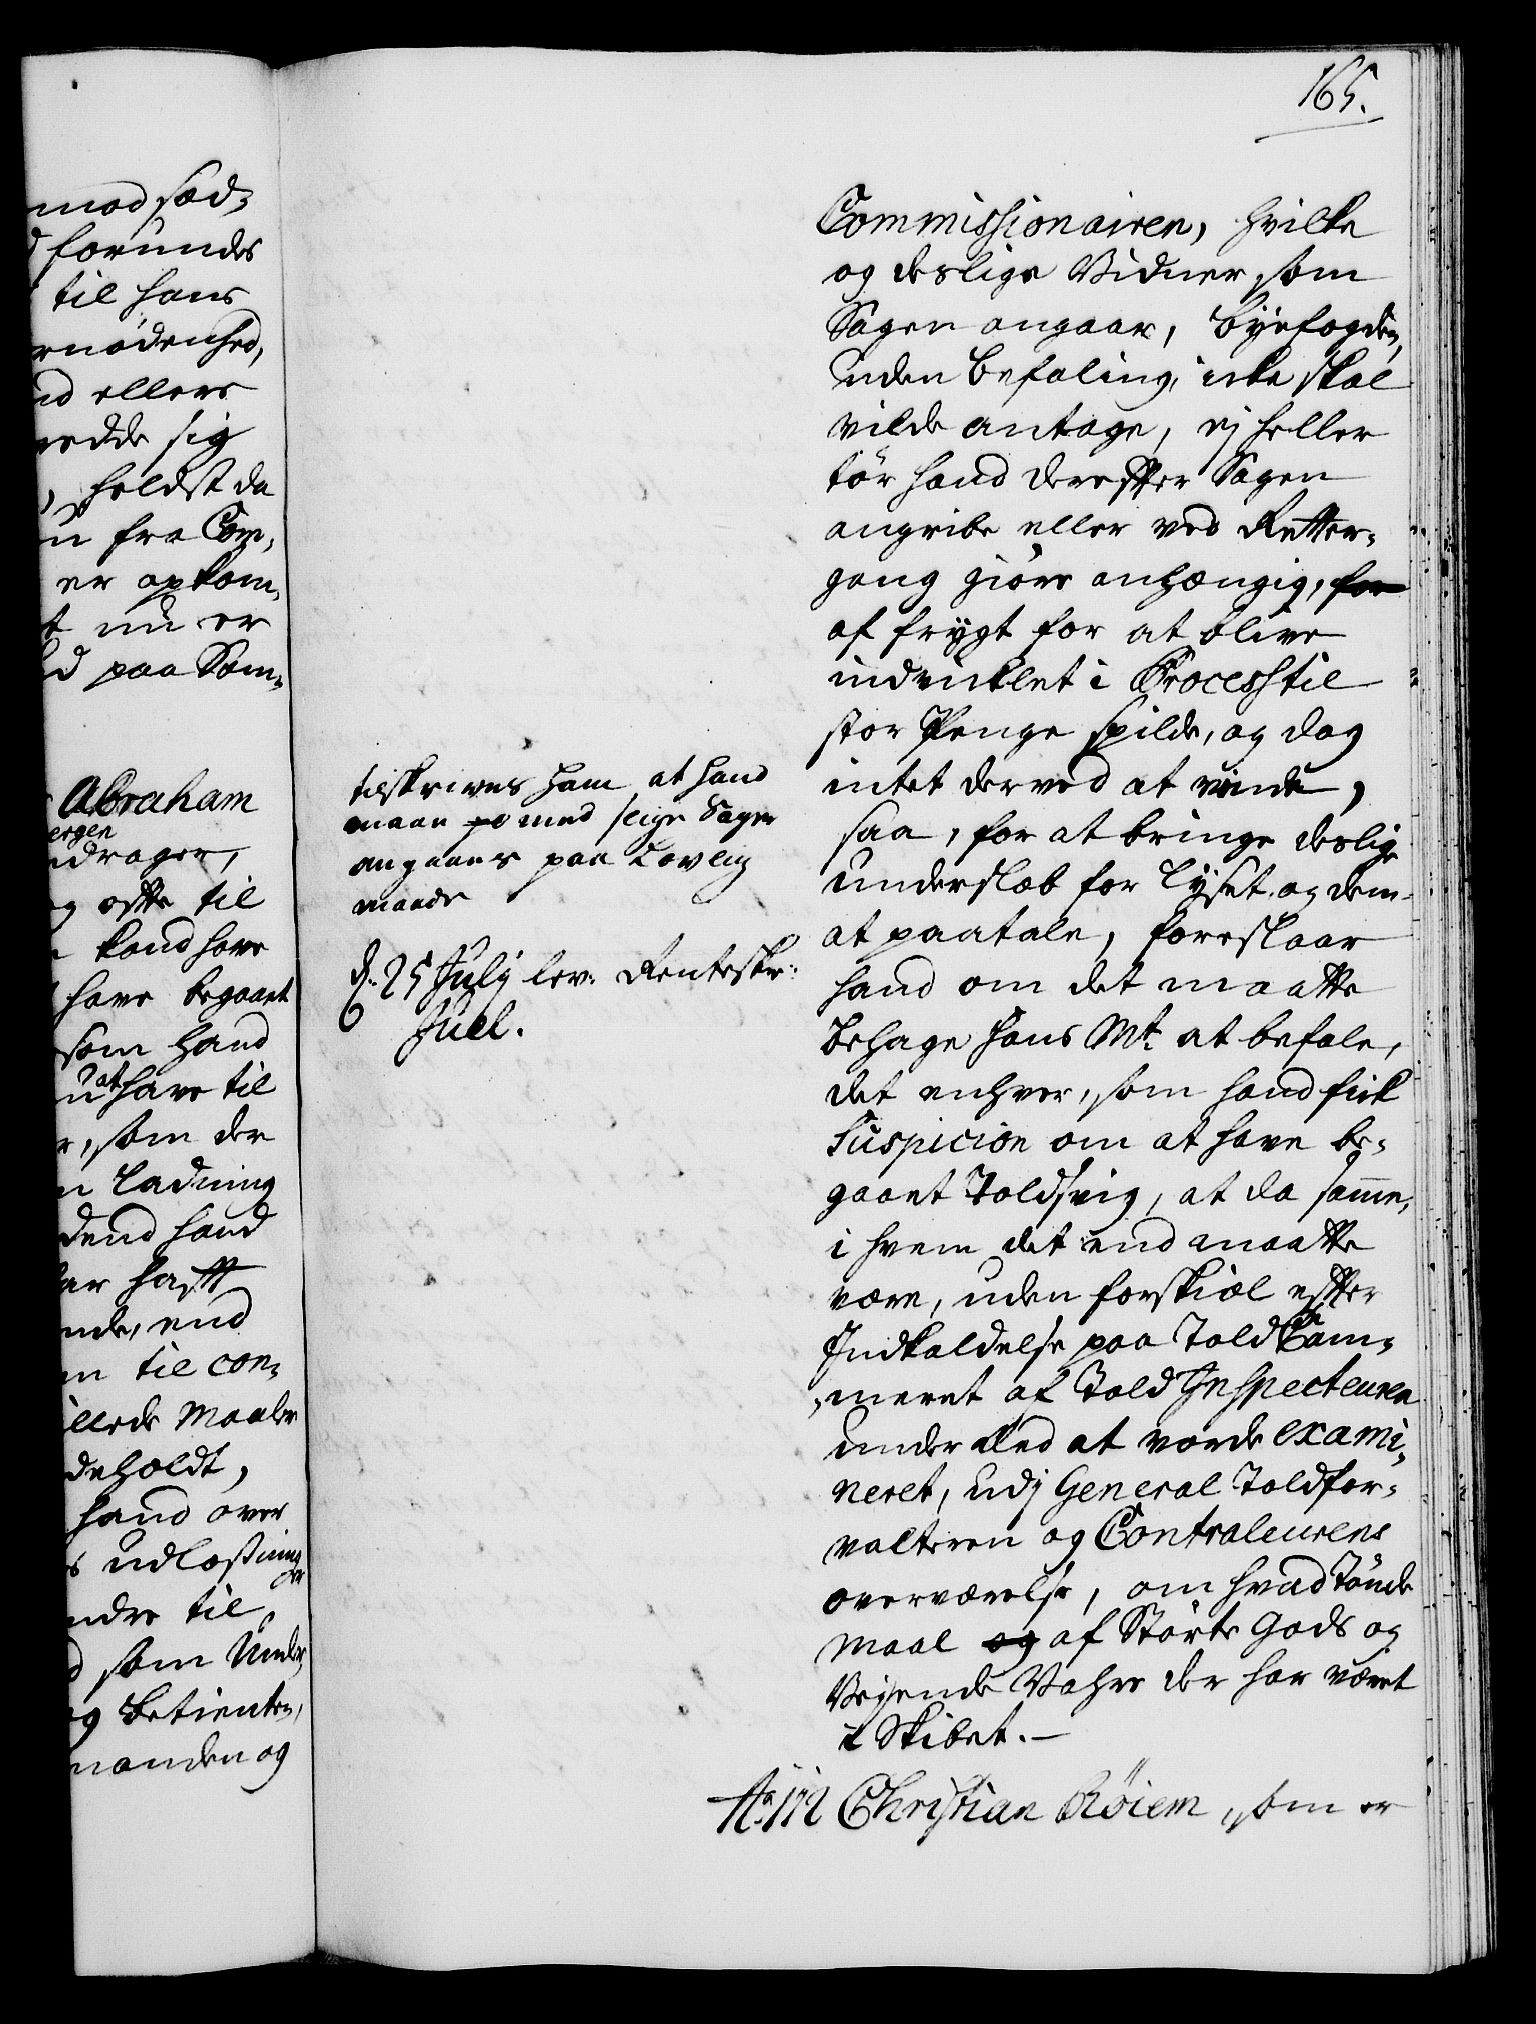 165.
mod sød,
forundes
til hans
nødenhed,
ellers
sig
heldst da
fra Com,
er opkom,
nu er
paa Som,
Abraham
ergen
drager,
til
kand have
have begaaet
som hand
at have til
som der
Ladning
dend hand
hafft
ende, end
til con,
Maaler
deholdt,
hand over
udlossning
til
som Under,
og Betienter,
manden og
tilskrives ham at hand
maae med slige Sager
angaaes paa Lovlig
maade
d: 25 July lev: Renteskr:
Juel.
Commissionairen, hvilke
og deslige Vidner, som
Sagen angaar, byefogden,
uden befaling, icke skal
vilde antage, ej heller
tör hand derefter Sagen
angribe eller ved Retter,
gang giöre anhængig, for
af frygt for at blive
indviklet i Process til
stor Penge spilde, og dog
intet derved at vinde,
saa, for at bringe deslige
underslæb for Lyset og dem
at paatale, foreslaar
hand om det maatte
behage Hans Mt. at befale,
det enhver, som hand fick
Suspicion om at have be,
gaaet Toldsvig, at da samme,
i hvem det end maatte
være, uden forskiæl effter
Indkaldelse paa Told Cam,
meret af Told Inspecteuren
under Eed at vorde exami,
neret, udj General Toldfor,
valteren og Contraleurens
overværelse, om hvad Tönde
Maal og af Störte Gods og
Vejende Vahre der har været
i Skibet. —
No. 172 Christian Röiem, som er